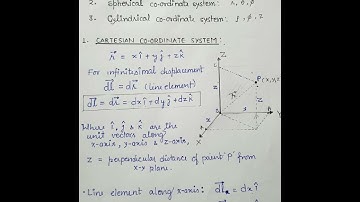 2. Spherical co-ordinate system: r, θ, φ
3. Cylindrical co-ordinate system: ρ, φ, z
1. CARTESIAN CO-ORDINATE SYSTEM:
r⃗ = xî + yĵ + zk̂
For infinitisimal displacement
dl⃗ = dr⃗ (line element)
dl⃗ = dr⃗ = dxî + dyĵ + dzk̂
Where î, ĵ & k̂ are the
unit vectors along
x-axis, y-axis & z-axis,
z = perpendicular distance of point 'P' from
x-y plane.
• Line element along x-axis: dl⃗ₓ = dx î
Z
P(x,y,z)
r⃗
z
Y
X